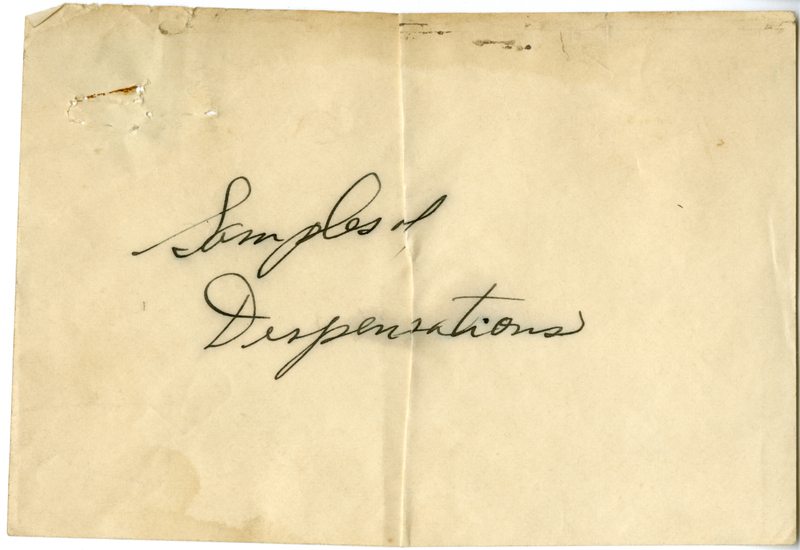 Samples of
Dispensations